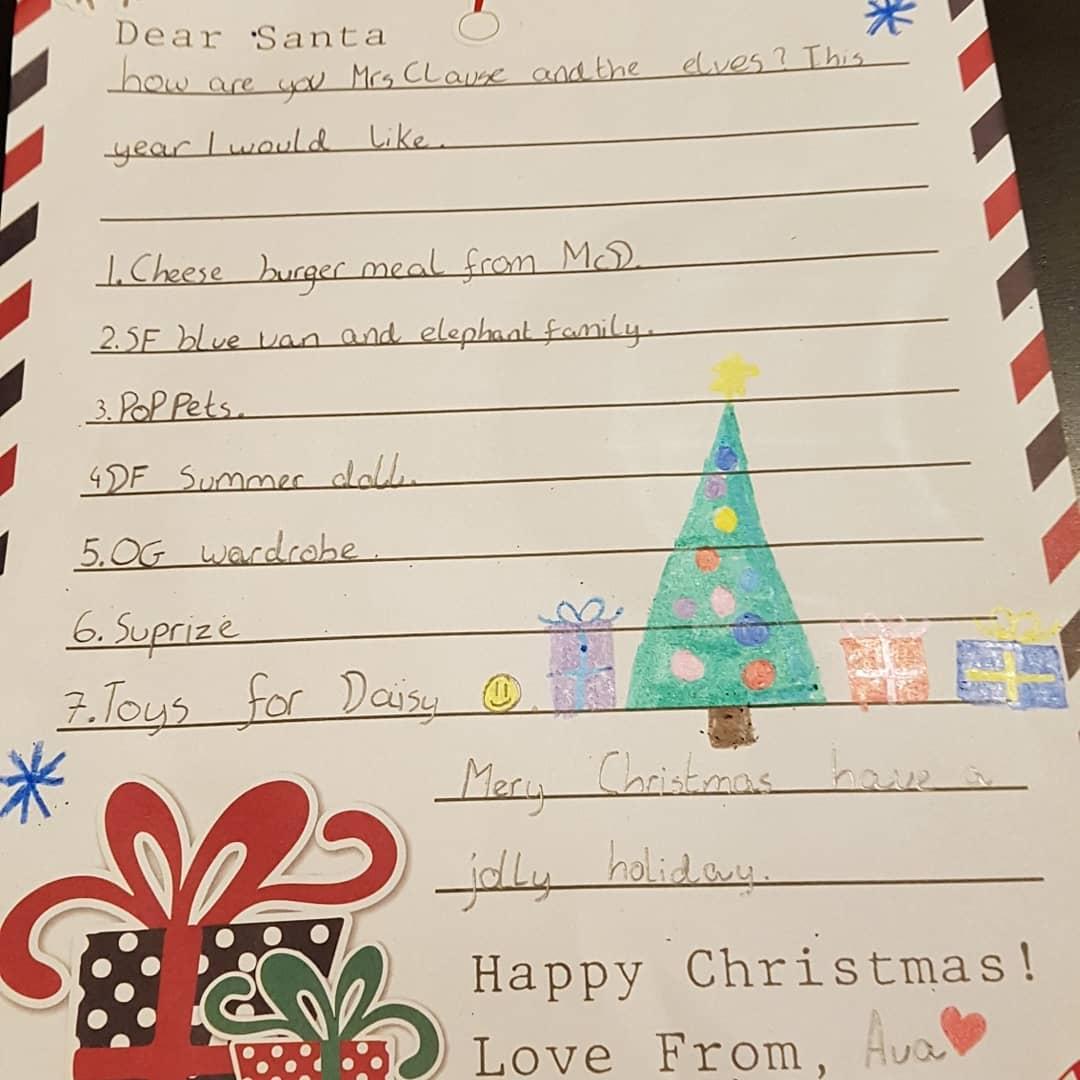 Dear Santa
how are you Mrs Clause and the elves? This
year I would like.
1. Cheese burger meal from McD.
2. SF blue van and elephant family.
3. PoPPets.
4 DF Summer doll.
5. OG wardrobe.
6. Suprize
7. Toys for Daisy
Mery Christmas have a
jolly holiday.
Happy Christmas!
Love From, Ava